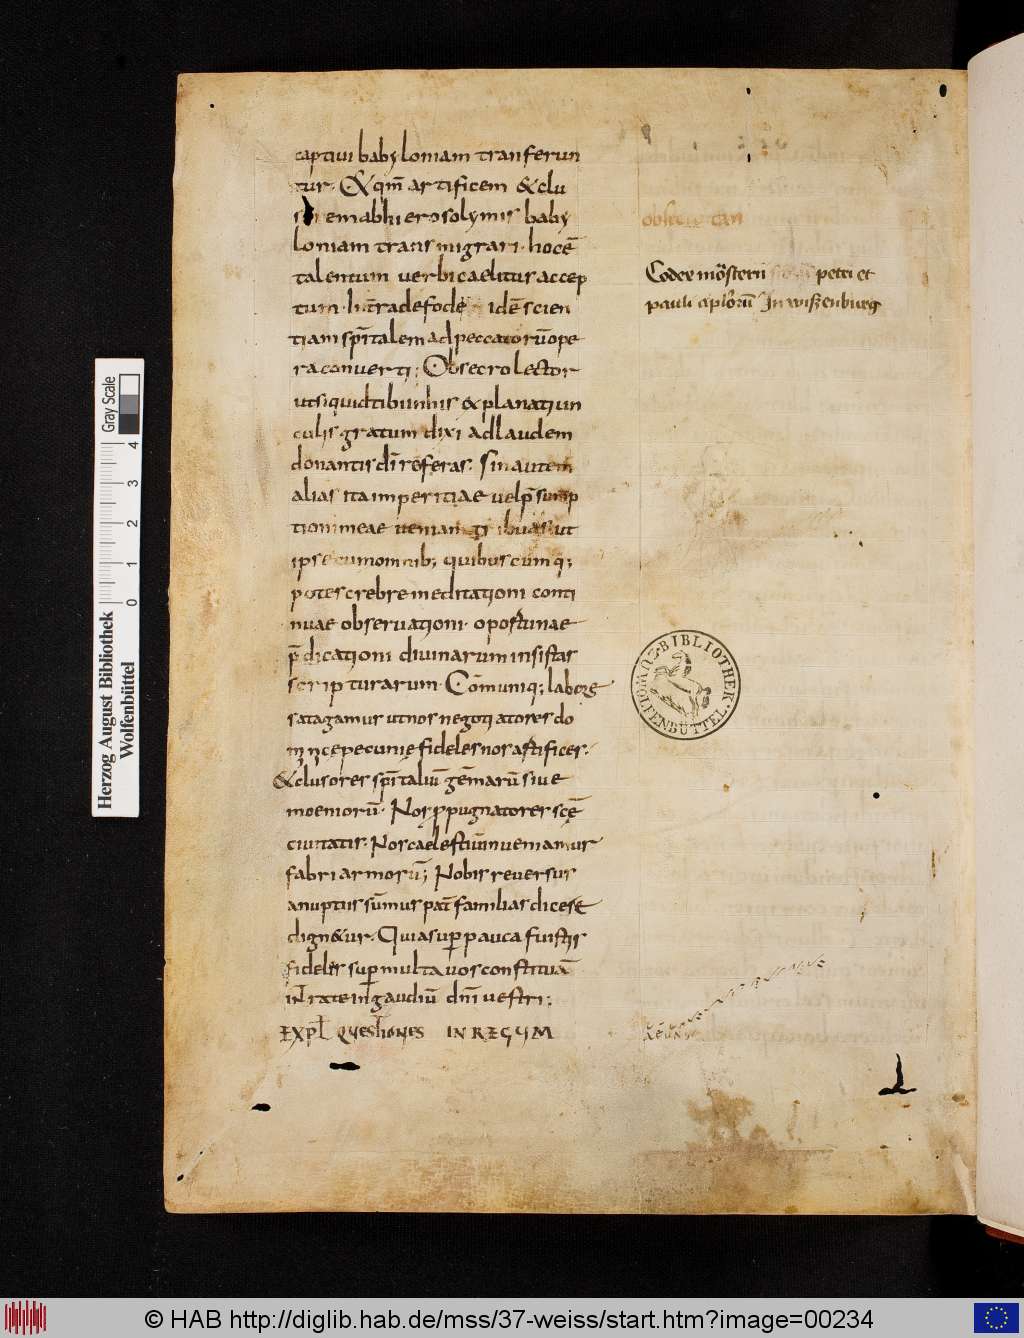 captiui babyloniam tranferun
tur. &qm̄ artificem &clu
rem abhierosolymis baby
loniam transmigrari. hocē
talentum uerbi caelitus accep
tum. inꝉrade fode idē scien
tiam spītalem adpeccatorūope
raconuerti; Obsecro lector
utsiquidtibiinhis &planatiun
culis gratum dixi adlaudem
donantis dī referas. Sin autem
alias ita imperitiae uelp̄sump
tioni meae ueniam tribuas ut
ipse cumomnib; quibuscumq;
potes crebre meditationi conti
nuae obseruationi. oportunae
p̄dicationi diuinarum insistas
scripturarum. Cōmuniq; labore
satagamus utnos negotiatores do
minicepecunię fideles nos artifices.
&clusores spītaliū gēmarū siue
moeniorū. Nos ꝓpugnatores scē
ciuitatis. Nos caelestiū inueniamur
fabri armorū; Nobis reuersus
anuptus sūmus pat̄ familias dicere
dign&ur. Quia suꝑ pauca fuistis
fideles suꝑ multa uos constituā
inꝉrate ingaudiū dn̄i uestri;
EXPꝉ QUESTIONES IN REGUM
obsecro
Codex mōsterii petri et
pauli aplorū In wißenburg
BIBLIOTHEK
WOLFENBÜTTEL
Herzog August Bibliothek
Wolfenbüttel
Gray Scale
0 1 2 3 4
© HAB http://diglib.hab.de/mss/37-weiss/start.htm?image=00234